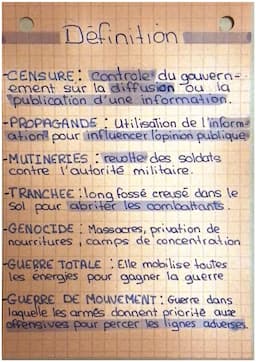 Définition
-CENSURE : controle du gouvern-
ement sur la diffusion ou la
publication d'une information.
-PROPAGANDE : Utilisation de l'inform-
ation pour influencer l'opinion publique
-MUTINERIES : revolte des soldats
contre l'autorité militaire.
-TRANCHEE : long fossé creusé dans le
sol pour abriter les combattants.
-GENOCIDE : Massacres, privation de
nourritures, camps de concentration
-GUERRE TOTALE : Elle mobilise toutes
les énergies pour gagner la guerre
-GUERRE DE MOUVEMENT : Guerre dans
laquelle les armés donnent priorité aux
offensives pour percer les lignes adverses.